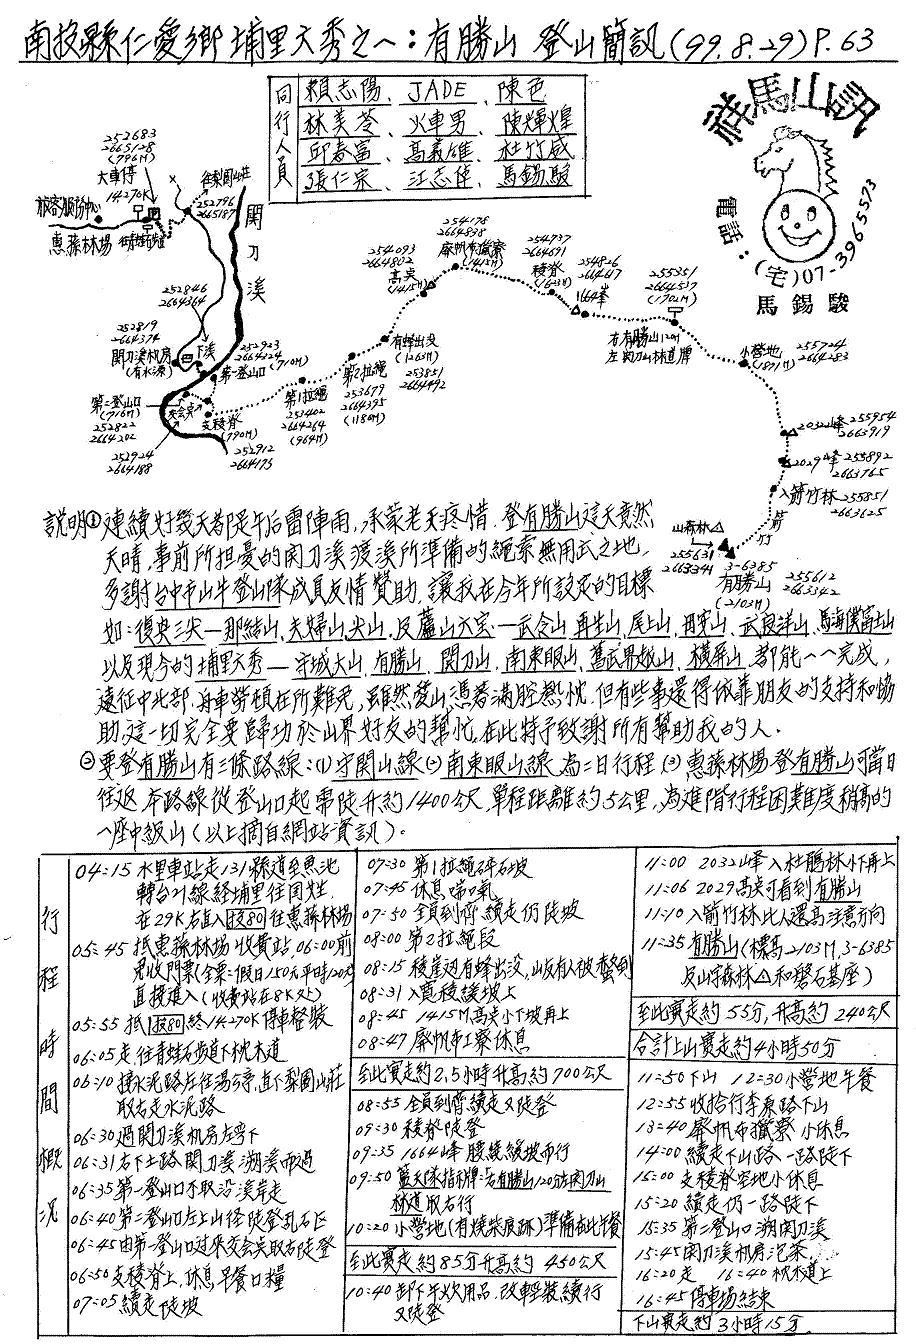 南投縣仁愛鄉 埔里六秀之一:有勝山 登山簡訊(99.8.29)P.63
同行人員
賴志陽、JADE、陳色
林美苓、火車男、陳輝煌
邱春富、高義雄、杜竹威
張仁宗、江志偉、馬錫駿
祥馬山訊
電話:(宅)07-3965573
馬錫駿
252683
2665128
(796M)
大車停
14270K
旅客服務中心
惠蓀林場
往梨園山莊
252796
2665187
関刀溪
252846
2664364
252819
2664374
関刀溪机房
(有水源)
下溪
252923
2664224
第一登山口(710M)
第二登山口
(716M)
252822
2664202
交会点
252924
2664188
支稜脊
(790M)
252912
2664175
第1拉繩
253402
2664264
(964M)
第2拉繩
253679
2664395
(1180M)
有蜂出沒
(1263M)
253851
2664492
254093
2664802
高点
(1415M)
254178
2664838
廢帆布獵寮
(1412M)
254737
2664691
稜脊
(1643M)
254826
2664617
1664峯
255351
2664537
(1702M)
右有勝山120分
左関刀山林道牌
小營地
(1871M)
255724
2664283
2032峰
255954
2663919
2029峰
255892
2663765
入箭竹林
255851
2663625
箭竹
山森林△
255631
2663341
3-6385
有勝山
(2103M)
255612
2663342
說明①連續好幾天都是午后雷陣雨,承蒙老天疼惜.登有勝山這天竟然
天晴,事前所担憂的関刀溪渡溪所準備的繩索無用武之地,
多謝台中市山牛登山隊成員友情贊助,讓我在今年所設定的目標
如:復興三尖—那結山,夫婦山,尖山,及蘆山六宝—武令山,再生山,尾上山,母安山,武良洋山,馬海僕富士山
以及現今的埔里六秀—守城大山,有勝山,関刀山,南東眼山,舊武界越山,橫屏山,都能一一完成,
遠征中北部,舟車勞頓在所難免,雖然登山憑著滿腔熱忱.但有些事還得依靠朋友的支持和協
助,這一切完全要歸功於山界好友的幫忙,在此特予致謝所有幫助我的人.
②要登有勝山有三條路線:(1)守関山線(2)南東眼山線,為二日行程(3)惠蓀林場登有勝山,可當日
往返,本路線從登山口起需陡升約1400公尺,單程距離約5公里,為進階行程困難度稍高的
一座中級山(以上摘自網站資訊).
行程時間概況
04:15 水里車站走131縣道至魚池
轉台21線經埔里往國姓,
在29K右直入投80往惠蓀林場
05:45 抵惠蓀林場收費站,06:00前
免收門票(全票:假日150元平時120元)
直接進入(收費站在8K又5)
05:55 抵投80終14270K停車整裝
06:05 走往青蛙石步道下枕木道
06:10 接水泥路左往湯公亭,直下梨園山莊
取右走水泥路
06:30 過関刀溪机房左彎下
06:31 右下土路関刀溪溯溪而過
06:35 第一登山口不取沿溪岸走
06:40 第二登山口左上山徑陡登乱石区
06:45 由第一登山口过來交会点取右陡登
06:50 支稜脊上,休息早餐口糧
07:05 續走陡坡
07:30 第1拉繩碎石坡
07:45 休息喘口氣
07:50 全員到齊續走仍陡坡
08:00 第2拉繩段
08:15 稜崖边有蜂出沒,山友有人被螫到
08:31 入寬稜緩坡上
08:45 1415M高点小下坡再上
08:47 廢帆布工寮休息
至此實走約2.5小時升高約700公尺
08:55 全員到齊續走又陡登
09:30 稜脊陡登
09:35 1664峰腰繞緩坡而行
09:50 藍天隊指示牌:右有勝山120分左関刀山
林道取右行
10:20 小營地(有燒柴痕跡)準備在此午餐
至此實走約85分升高約450公尺
10:40 卸下午炊用品.改輕裝續行
又陡登
11:00 2032山峰入杜鵑林小下再上
11:06 2029高点可看到有勝山
11:10 入箭竹林比人還高注意方向
11:35 有勝山(標高2103M,3-6385
及山森林△和磐石基座)
至此實走約55分,升高約240公尺
合計上山實走約4小時50分
11:50 下山 12:30小營地午餐
12:55 收拾行李原路下山
13:40 廢帆布獵寮小休息
14:00 續走下山路一路陡下
15:00 支稜脊空地小休息
15:20 續走仍一路陡下
15:35 第二登山口溯関刀溪
15:45 関刀溪机房泡茶
16:20 走 16:40 枕木道上
16:45 停車場結束
下山實走約3小時15分